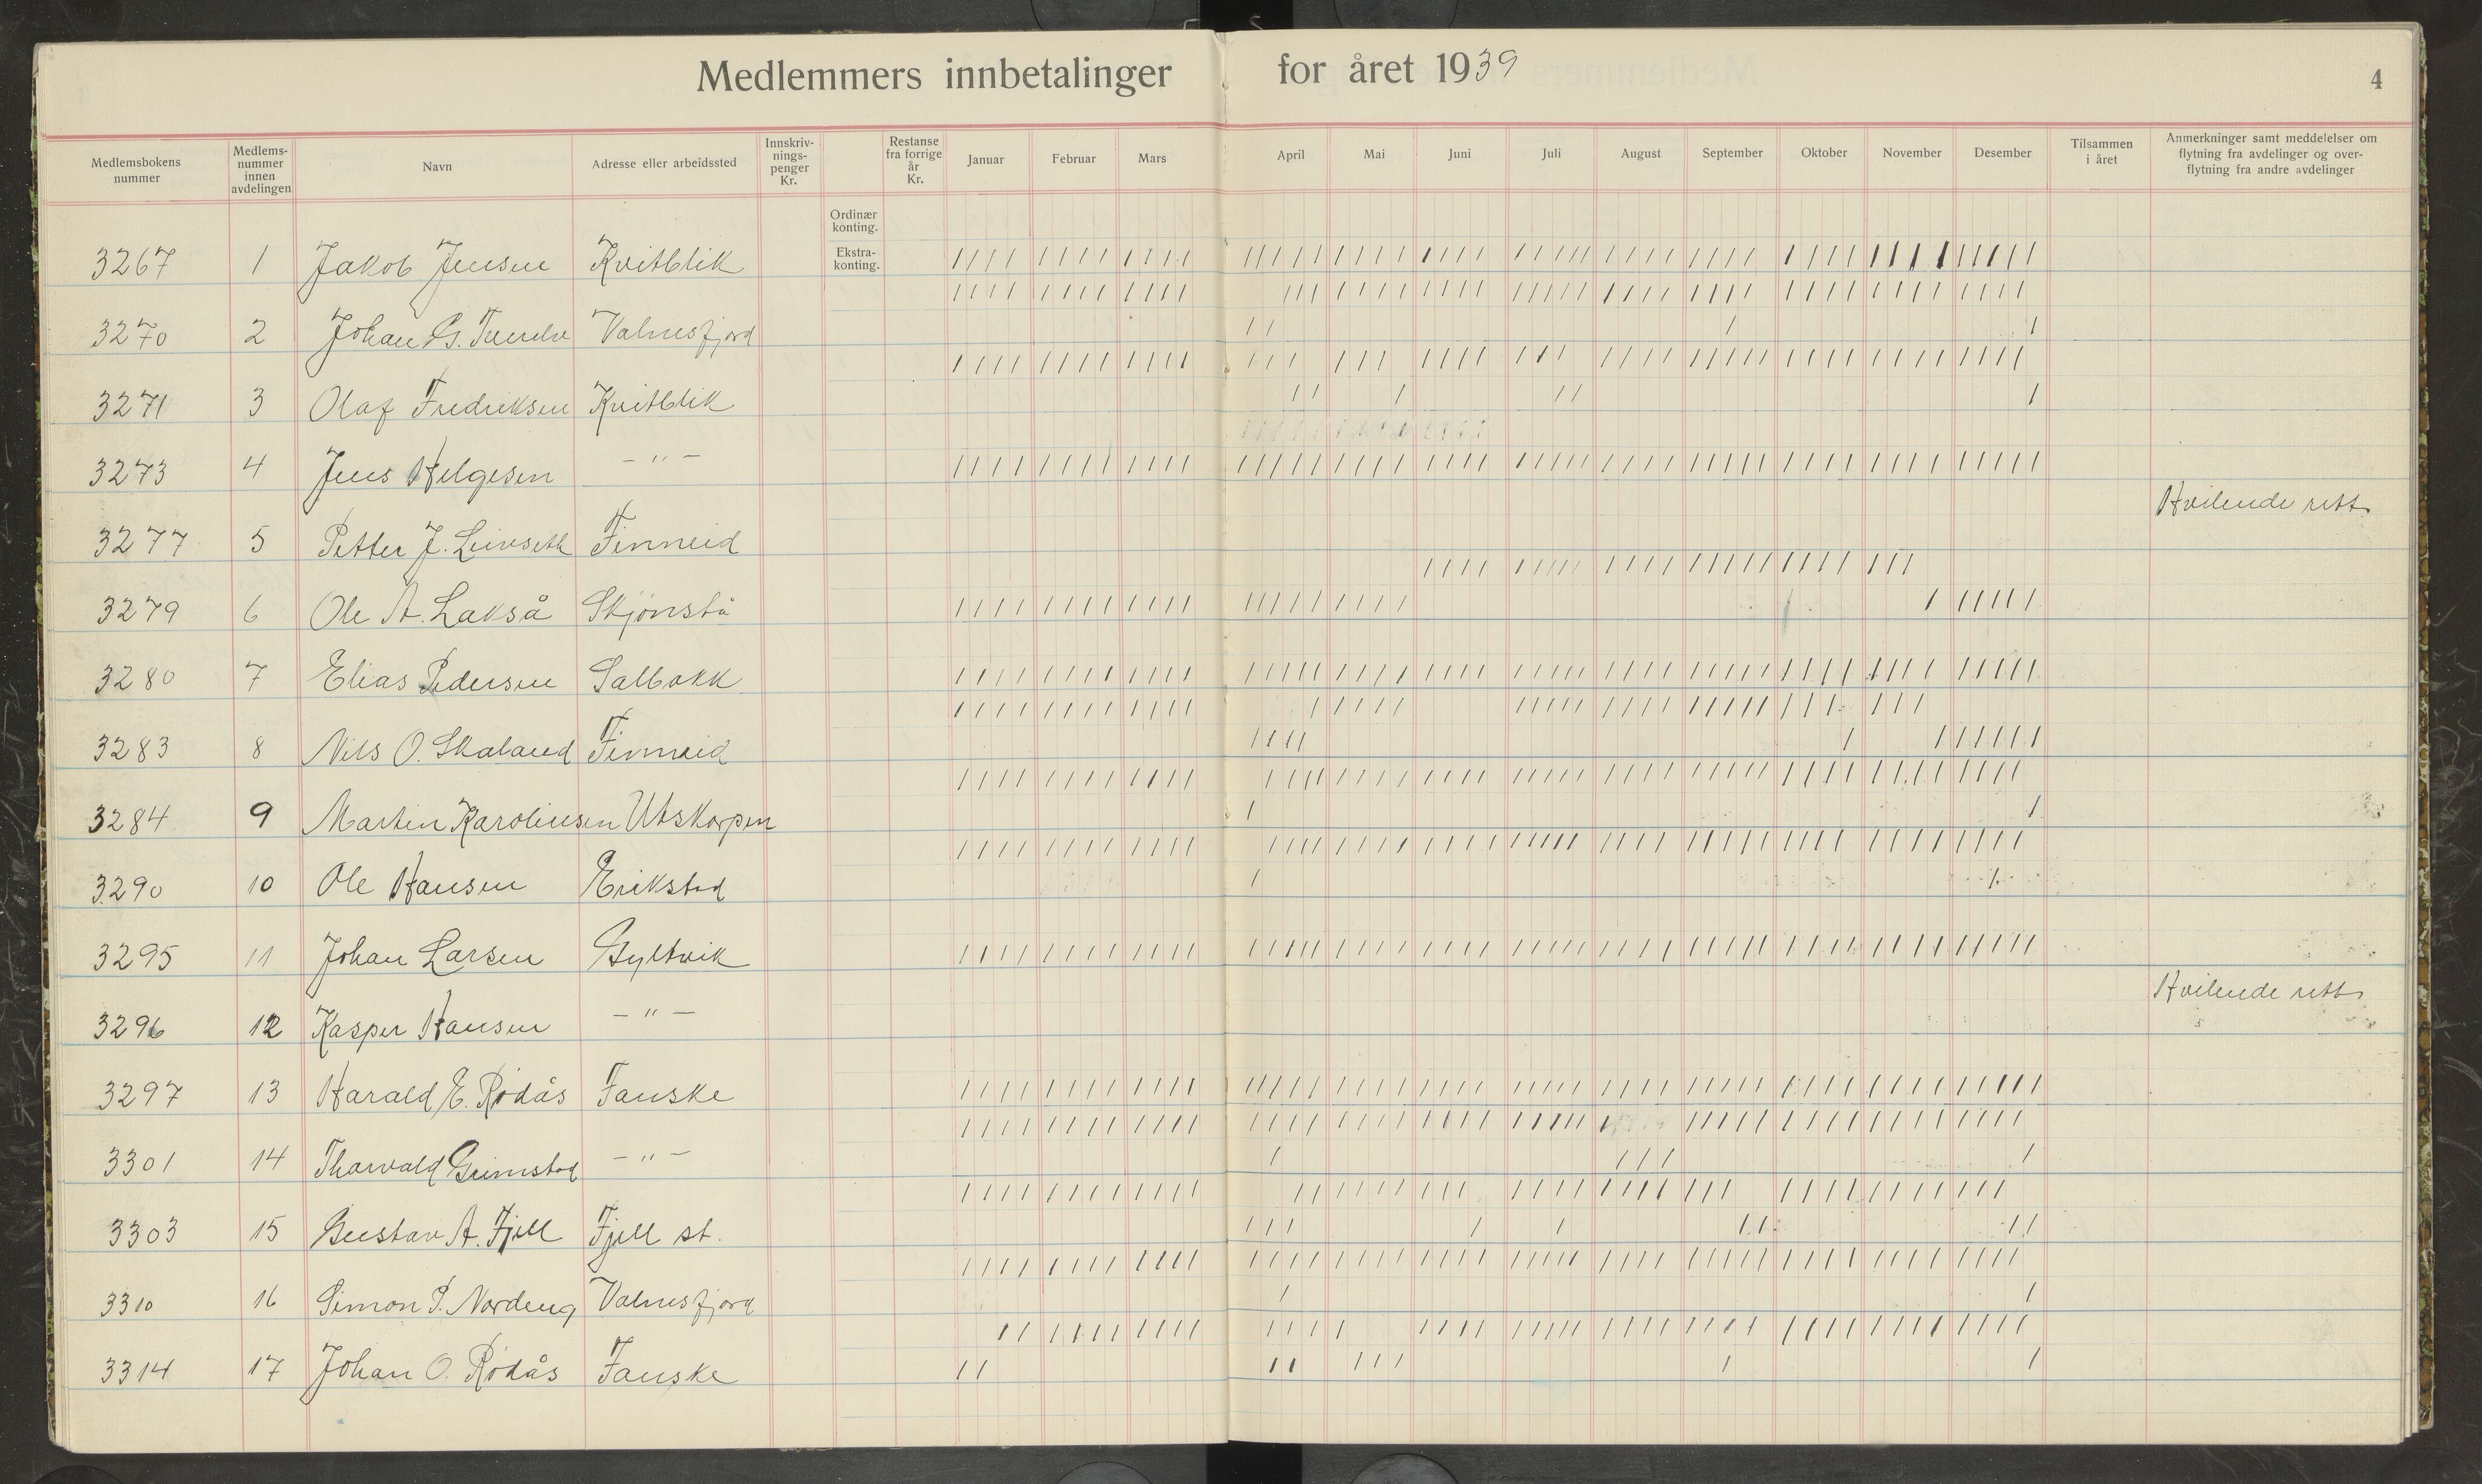 Medlemmers innbetalinger for året 1939
4
Medlemsbokens nummer
Medlems-nummer innen avdelingen
Navn
Adresse eller arbeidssted
Innskriv-nings-penger Kr.
Restanse fra forrige år Kr.
Januar
Februar
Mars
April
Mai
Juni
Juli
August
September
Oktober
November
Desember
Tilsammen i året
Anmerkninger samt meddelelser om flytning fra avdelinger og over-flytning fra andre avdelinger
Ordinær konting.
Ekstra-konting.
3267 1 Jakob Jensen Kvitblik
3270 2 Johan G. Valnesfjord
3271 3 Olaf Fredriksen Kvitblik
3273 4 Jens Helgesen - " -
Hvilende rett
3277 5 Petter J. Finneid
3279 6 Ole A. Lakså Skjönstå
3280 7 Elias Pedersen Salbakk
3283 8 Nils O. Skaland Finneid
3284 9 Martin Karolinsen Utskarpen
3290 10 Ole Hansen Erikstad
3295 11 Johan Larsen Gyltvik
Hvilende rett
3296 12 Kasper Hansen - " -
3297 13 Harald E. Rødås Fauske
3301 14 Tharvald Grimstad - " -
3303 15 Gustav A. Fjell Fjell st.
3310 16 Simon P. Nordeng Valnesfjord
3314 17 Johan O. Rødås Fauske